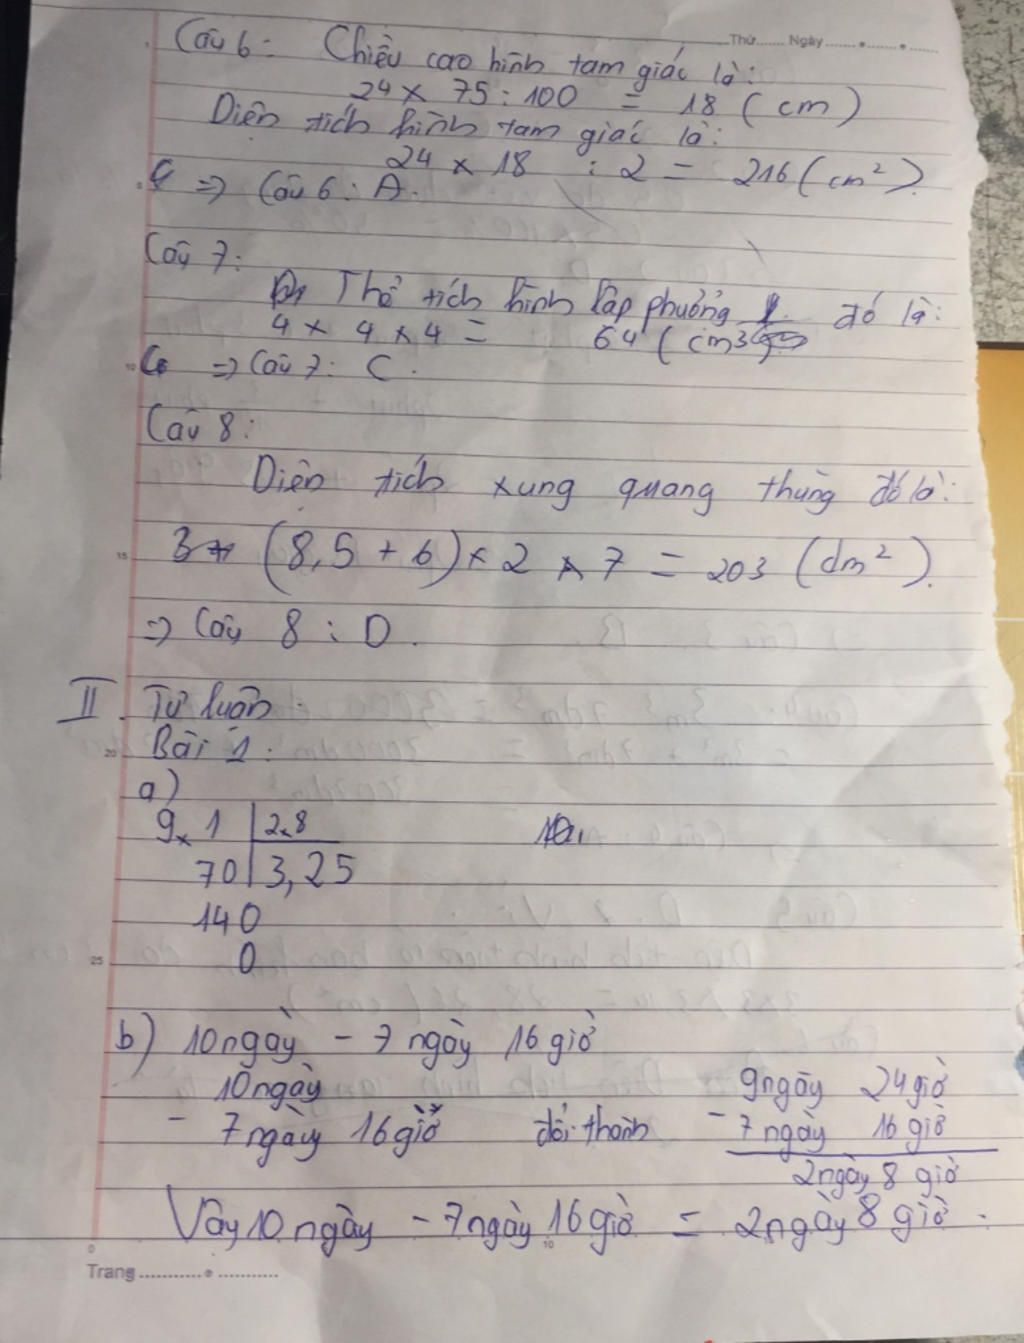 Thứ....... Ngày.......
Câu 6: Chiều cao hình tam giác là:
24 x 75 : 100 = 18 (cm)
Diện tích hình tam giác là:
24 x 18 : 2 = 216 (cm²).
=> Câu 6: A.
Câu 7:
Thể tích hình lập phương đó là:
4 x 4 x 4 = 64 (cm3)
=> Câu 7: C.
Câu 8:
Diện tích xung quang thùng đó là:
(8,5 + 6) x 2 x 7 = 203 (dm²).
=> Câu 8: D.
II. Tự luận.
Bài 1:
a)
9,1 2,8
70 3,25
140
0
b) 10 ngày - 7 ngày 16 giờ
10 ngày 9 ngày 24 giờ
- 7 ngày 16 giờ đổi thành - 7 ngày 16 giờ
2 ngày 8 giờ
Vậy 10 ngày - 7 ngày 16 giờ = 2 ngày 8 giờ.
Trang.......